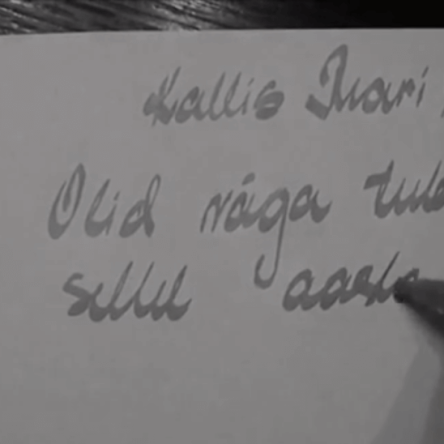 Kallis Mari,
Olid väga tubl
sellel aasta